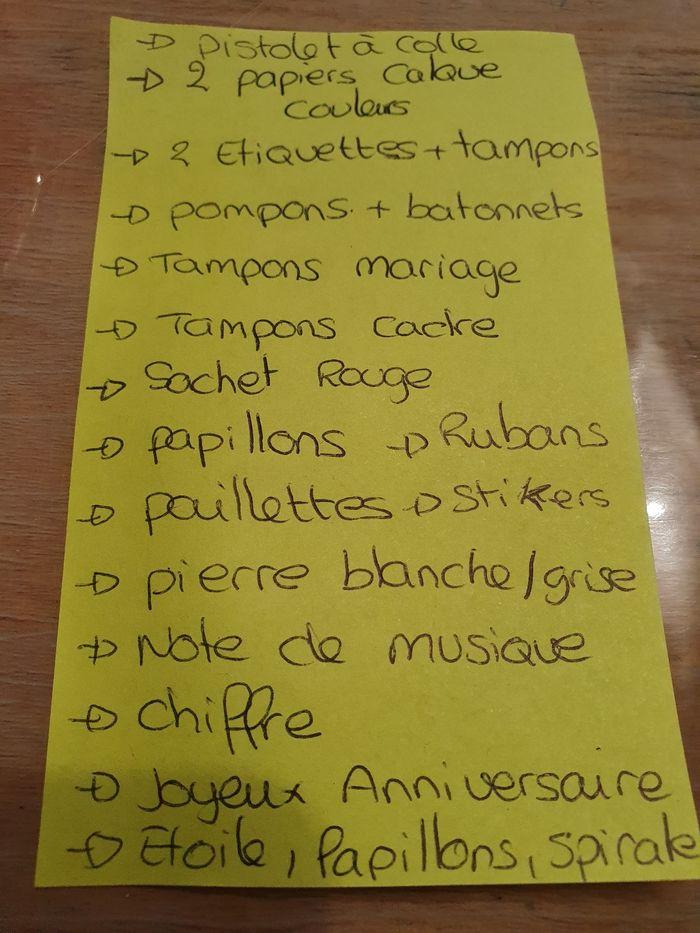 → Pistolet à colle
→ 2 papiers calque
couleurs
→ 2 Etiquettes + tampons
→ pompons. + batonnets
→ Tampons mariage
→ Tampons cadre
→ Sachet Rouge
→ papillons → Rubans
→ paillettes → stikers
→ pierre blanche/grise
→ Note de musique
→ chiffre
→ Joyeux Anniversaire
→ Etoile, Papillons, spirale